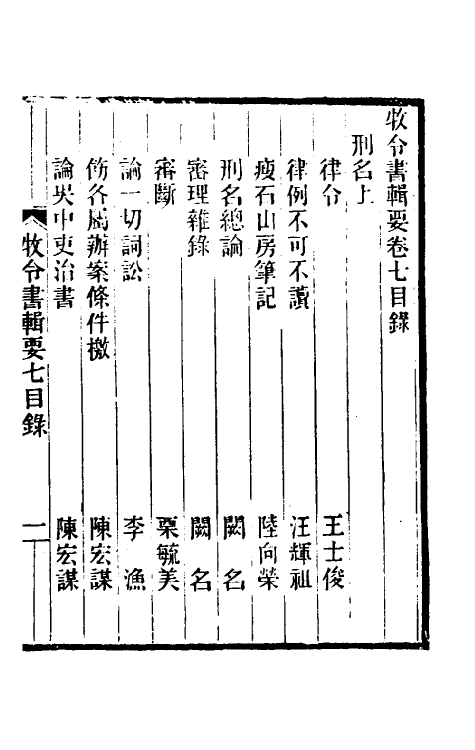 牧令書輯要卷七目錄
刑名上
律令　王士俊
律例不可不讀　汪輝祖
瘦石山房筆記　陸向榮
刑名總論　闕名
審理雜錄　闕名
審斷　栗毓美
論一切詞訟　李漁
飭各屬辦案條件檄　陳宏謀
論吳中吏治書　陳宏謀
牧令書輯要七目錄　一